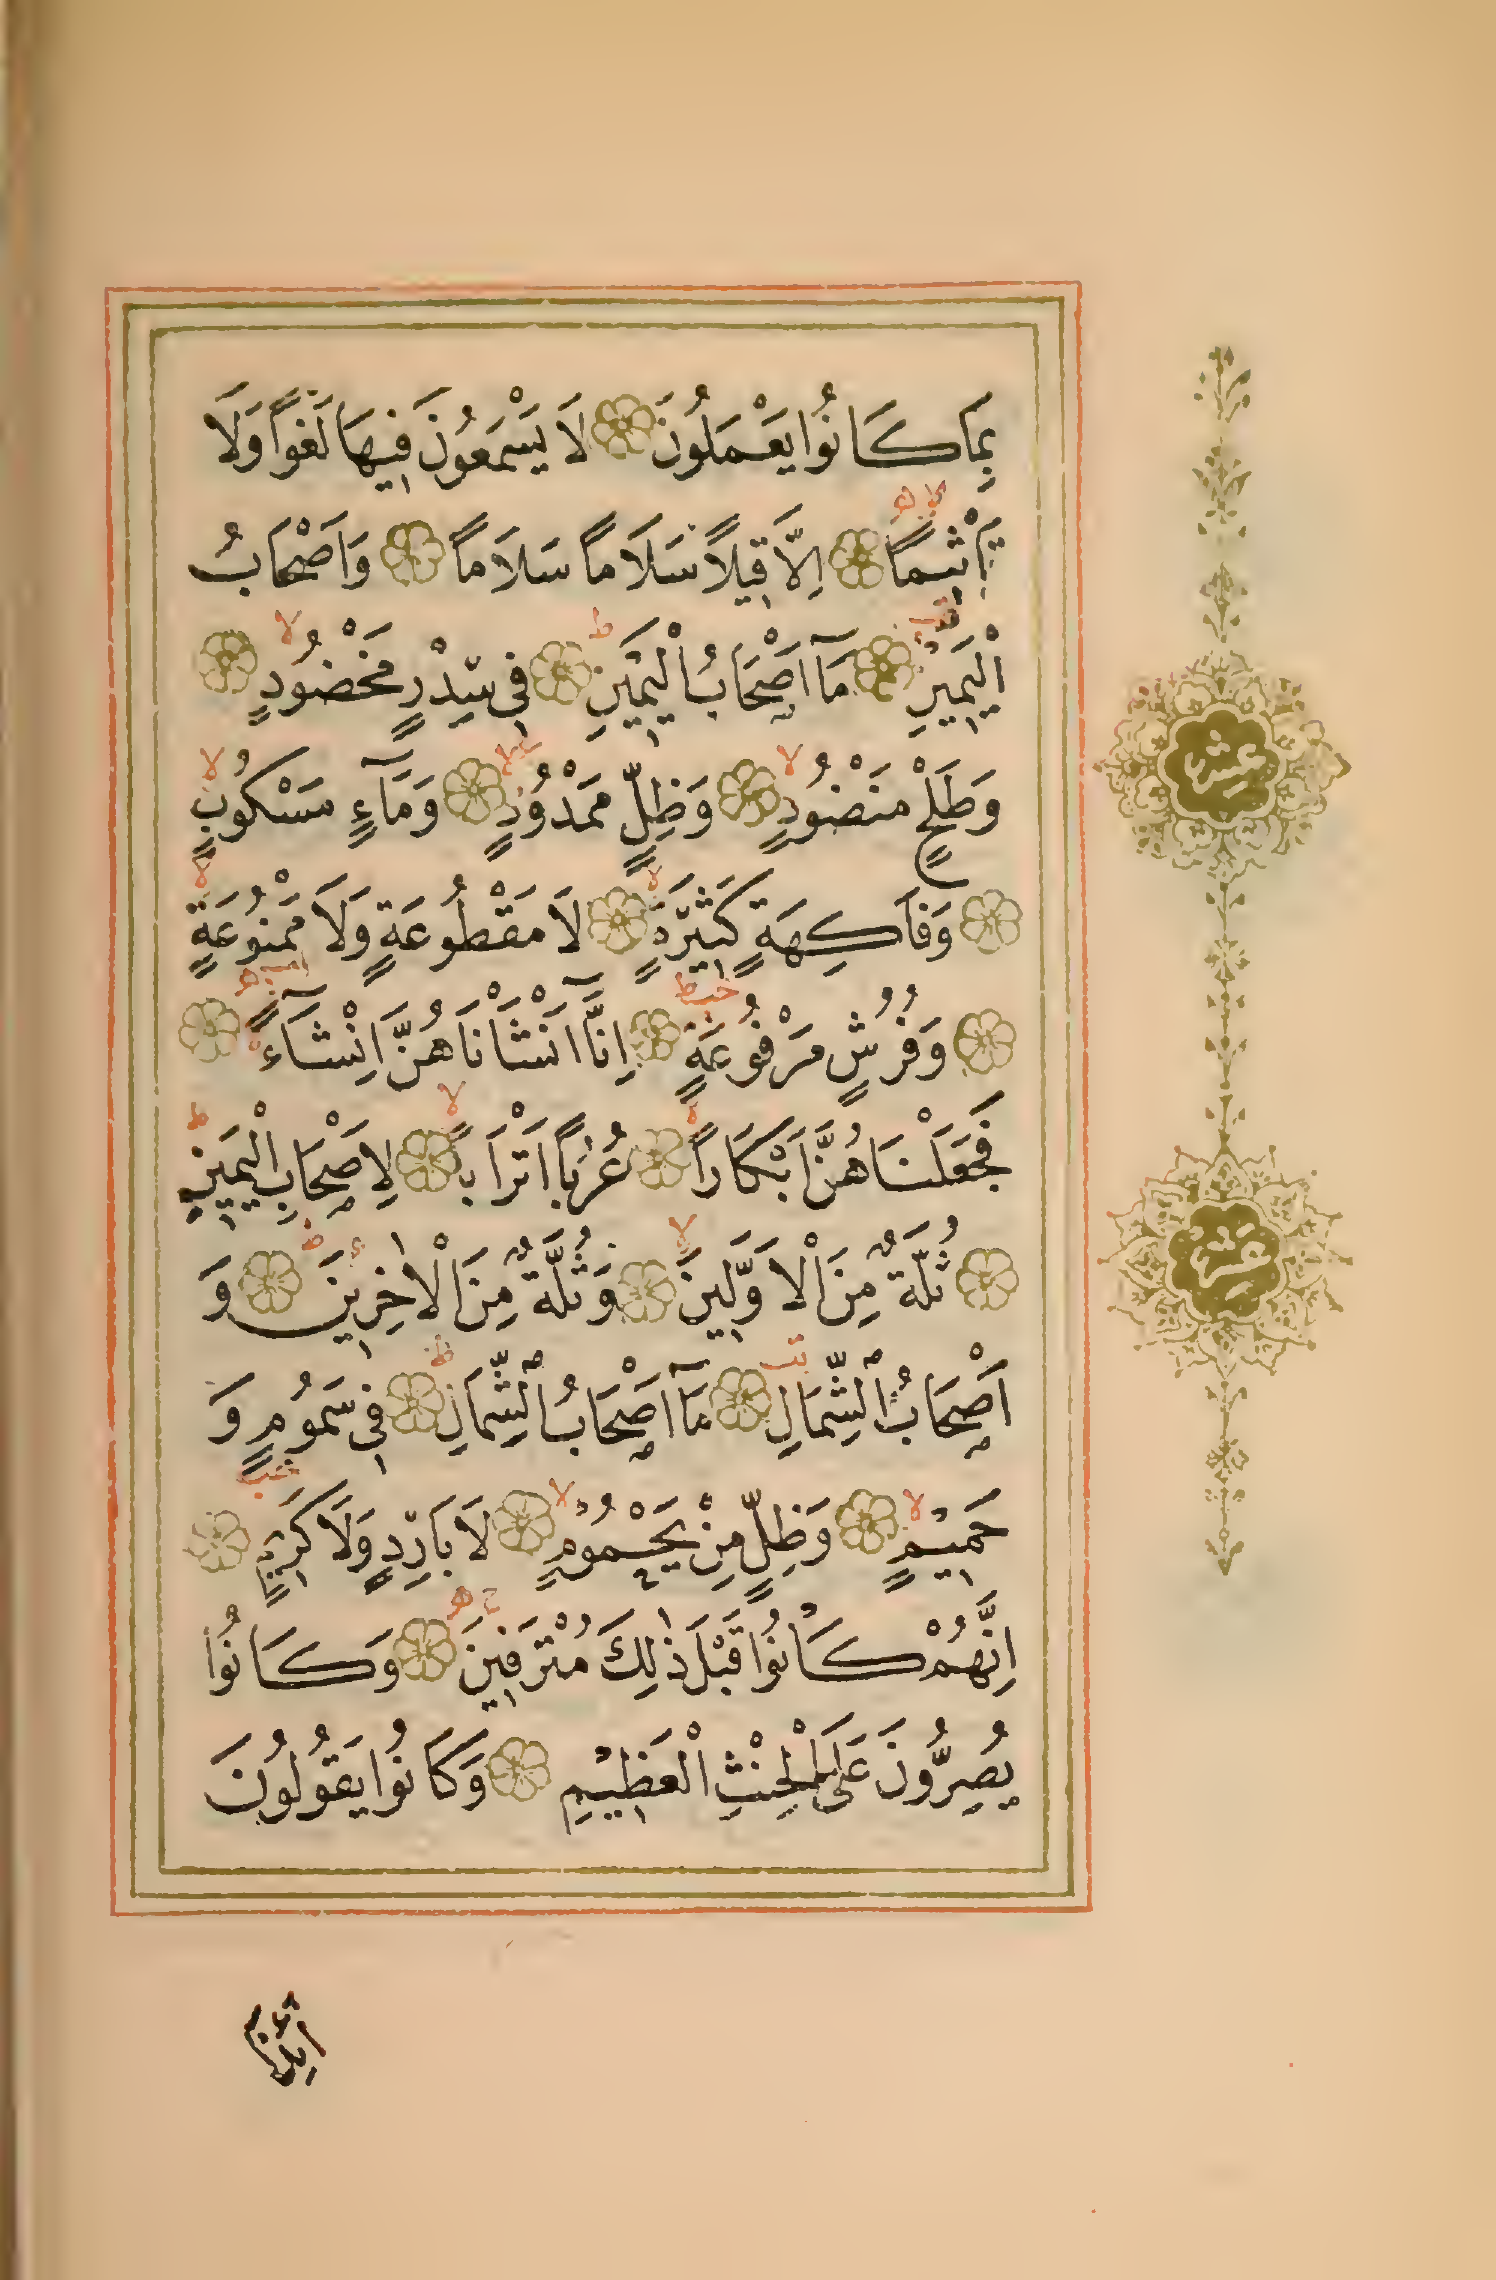 بِمَا كَانُوا يَعْمَلُونَ لَا يَسْمَعُونَ فِيهَا لَغْوًا وَلَا
تَأْثِيمًا اِلَّا قِيلًا سَلَامًا سَلَامًا وَاَصْحَابُ
الْيَمِينِ مَٓا اَصْحَابُ الْيَمِينِ فِي سِدْرٍ مَخْضُودٍ
وَطَلْحٍ مَنْضُودٍ وَظِلٍّ مَمْدُودٍ وَمَٓاءٍ مَسْكُوبٍ
وَفَاكِهَةٍ كَثِيرَةٍ لَا مَقْطُوعَةٍ وَلَا مَمْنُوعَةٍ
وَفُرُشٍ مَرْفُوعَةٍ اِنَّٓا اَنْشَاْنَاهُنَّ اِنْشَٓاءً
فَجَعَلْنَاهُنَّ اَبْكَارًا عُرُبًا اَتْرَابًا لِاَصْحَابِ الْيَمِينِ
ثُلَّةٌ مِنَ الْاَوَّلِينَ وَثُلَّةٌ مِنَ الْاٰخِرِينَ وَ
اَصْحَابُ الشِّمَالِ مَٓا اَصْحَابُ الشِّمَالِ فِي سَمُومٍ وَ
حَمِيمٍ وَظِلٍّ مِنْ يَحْمُومٍ لَا بَارِدٍ وَلَا كَرِيمٍ
اِنَّهُمْ كَانُوا قَبْلَ ذٰلِكَ مُتْرَفِينَ وَكَانُوا
يُصِرُّونَ عَلَى الْحِنْثِ الْعَظِيمِ وَكَانُوا يَقُولُونَ